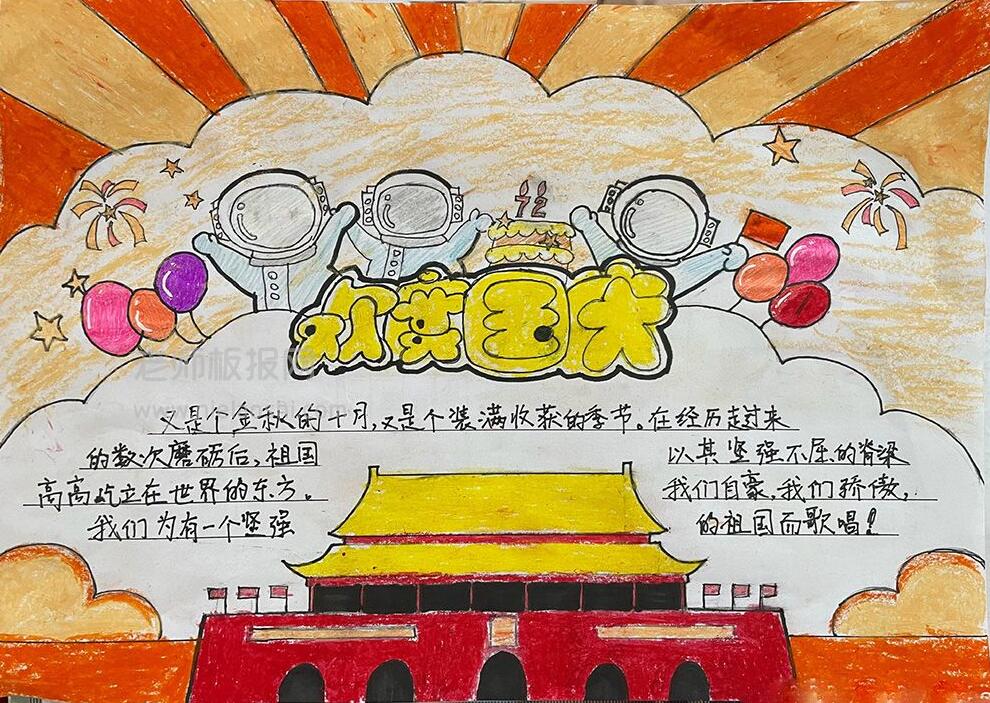 72
欢度国庆
老师板报网
又是个金秋的十月,又是个装满收获的季节。在经历走过来
的数次磨砺后,祖国 以其坚强不屈的脊梁
高高屹立在世界的东方。 我们自豪,我们骄傲,
我们为有一个坚强 的祖国而歌唱!